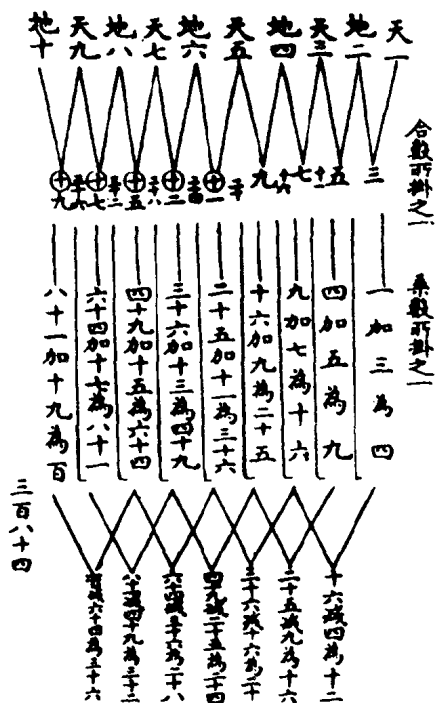 天一
地二
天三
地四
天五
地六
天七
地八
天九
地十
合數所掛之一
三
五
十二
七
十六
九
二十
十一
二十四
十三
二十八
十五
三十二
十七
三十六
十九
乘數所掛之一
一加三為四
四加五為九
九加七為十六
十六加九為二十五
二十五加十一為三十六
三十六加十三為四十九
四十九加十五為六十四
六十四加十七為八十一
八十一加十九為百
三百八十四
十六減四為十二
二十五減九為十六
三十六減十六為二十
四十九減二十五為二十四
六十四減三十六為二十八
八十減四十九為三十二
百減六十四為三十六